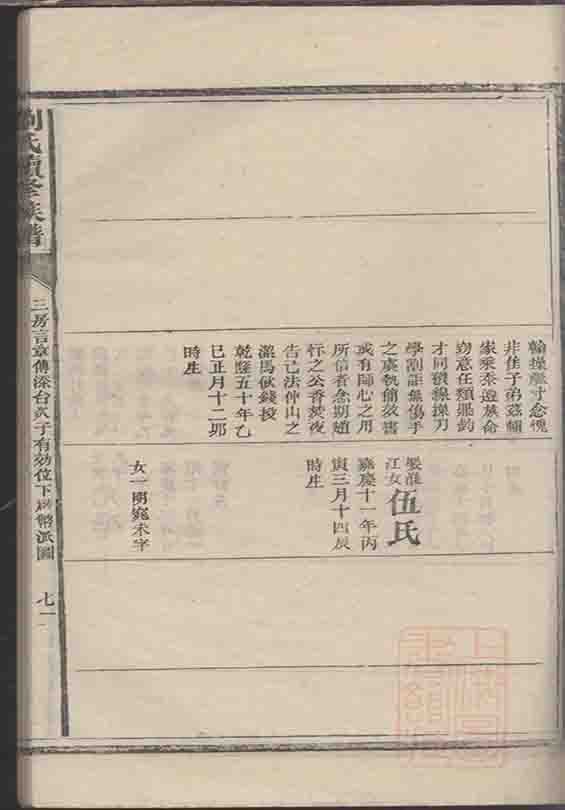 翰操觚寸念愧
非佳子弟茲輯
家乘忝遵族命
窃意在類罪豹
才同猿操刀
學割誰無傷手
之虞執簡效書
或有師心之用
所信者念期趙
抃之公香焚夜
告己法仲山之
潔馬飲錢投
乾隆五十年乙
巳正月十二卯
時生
江女伍氏
嘉慶十一年丙
寅三月十四辰
時生
女一明 未字
劉氏續修族譜
三房言章傳深台 子有効位下 派圖
七一